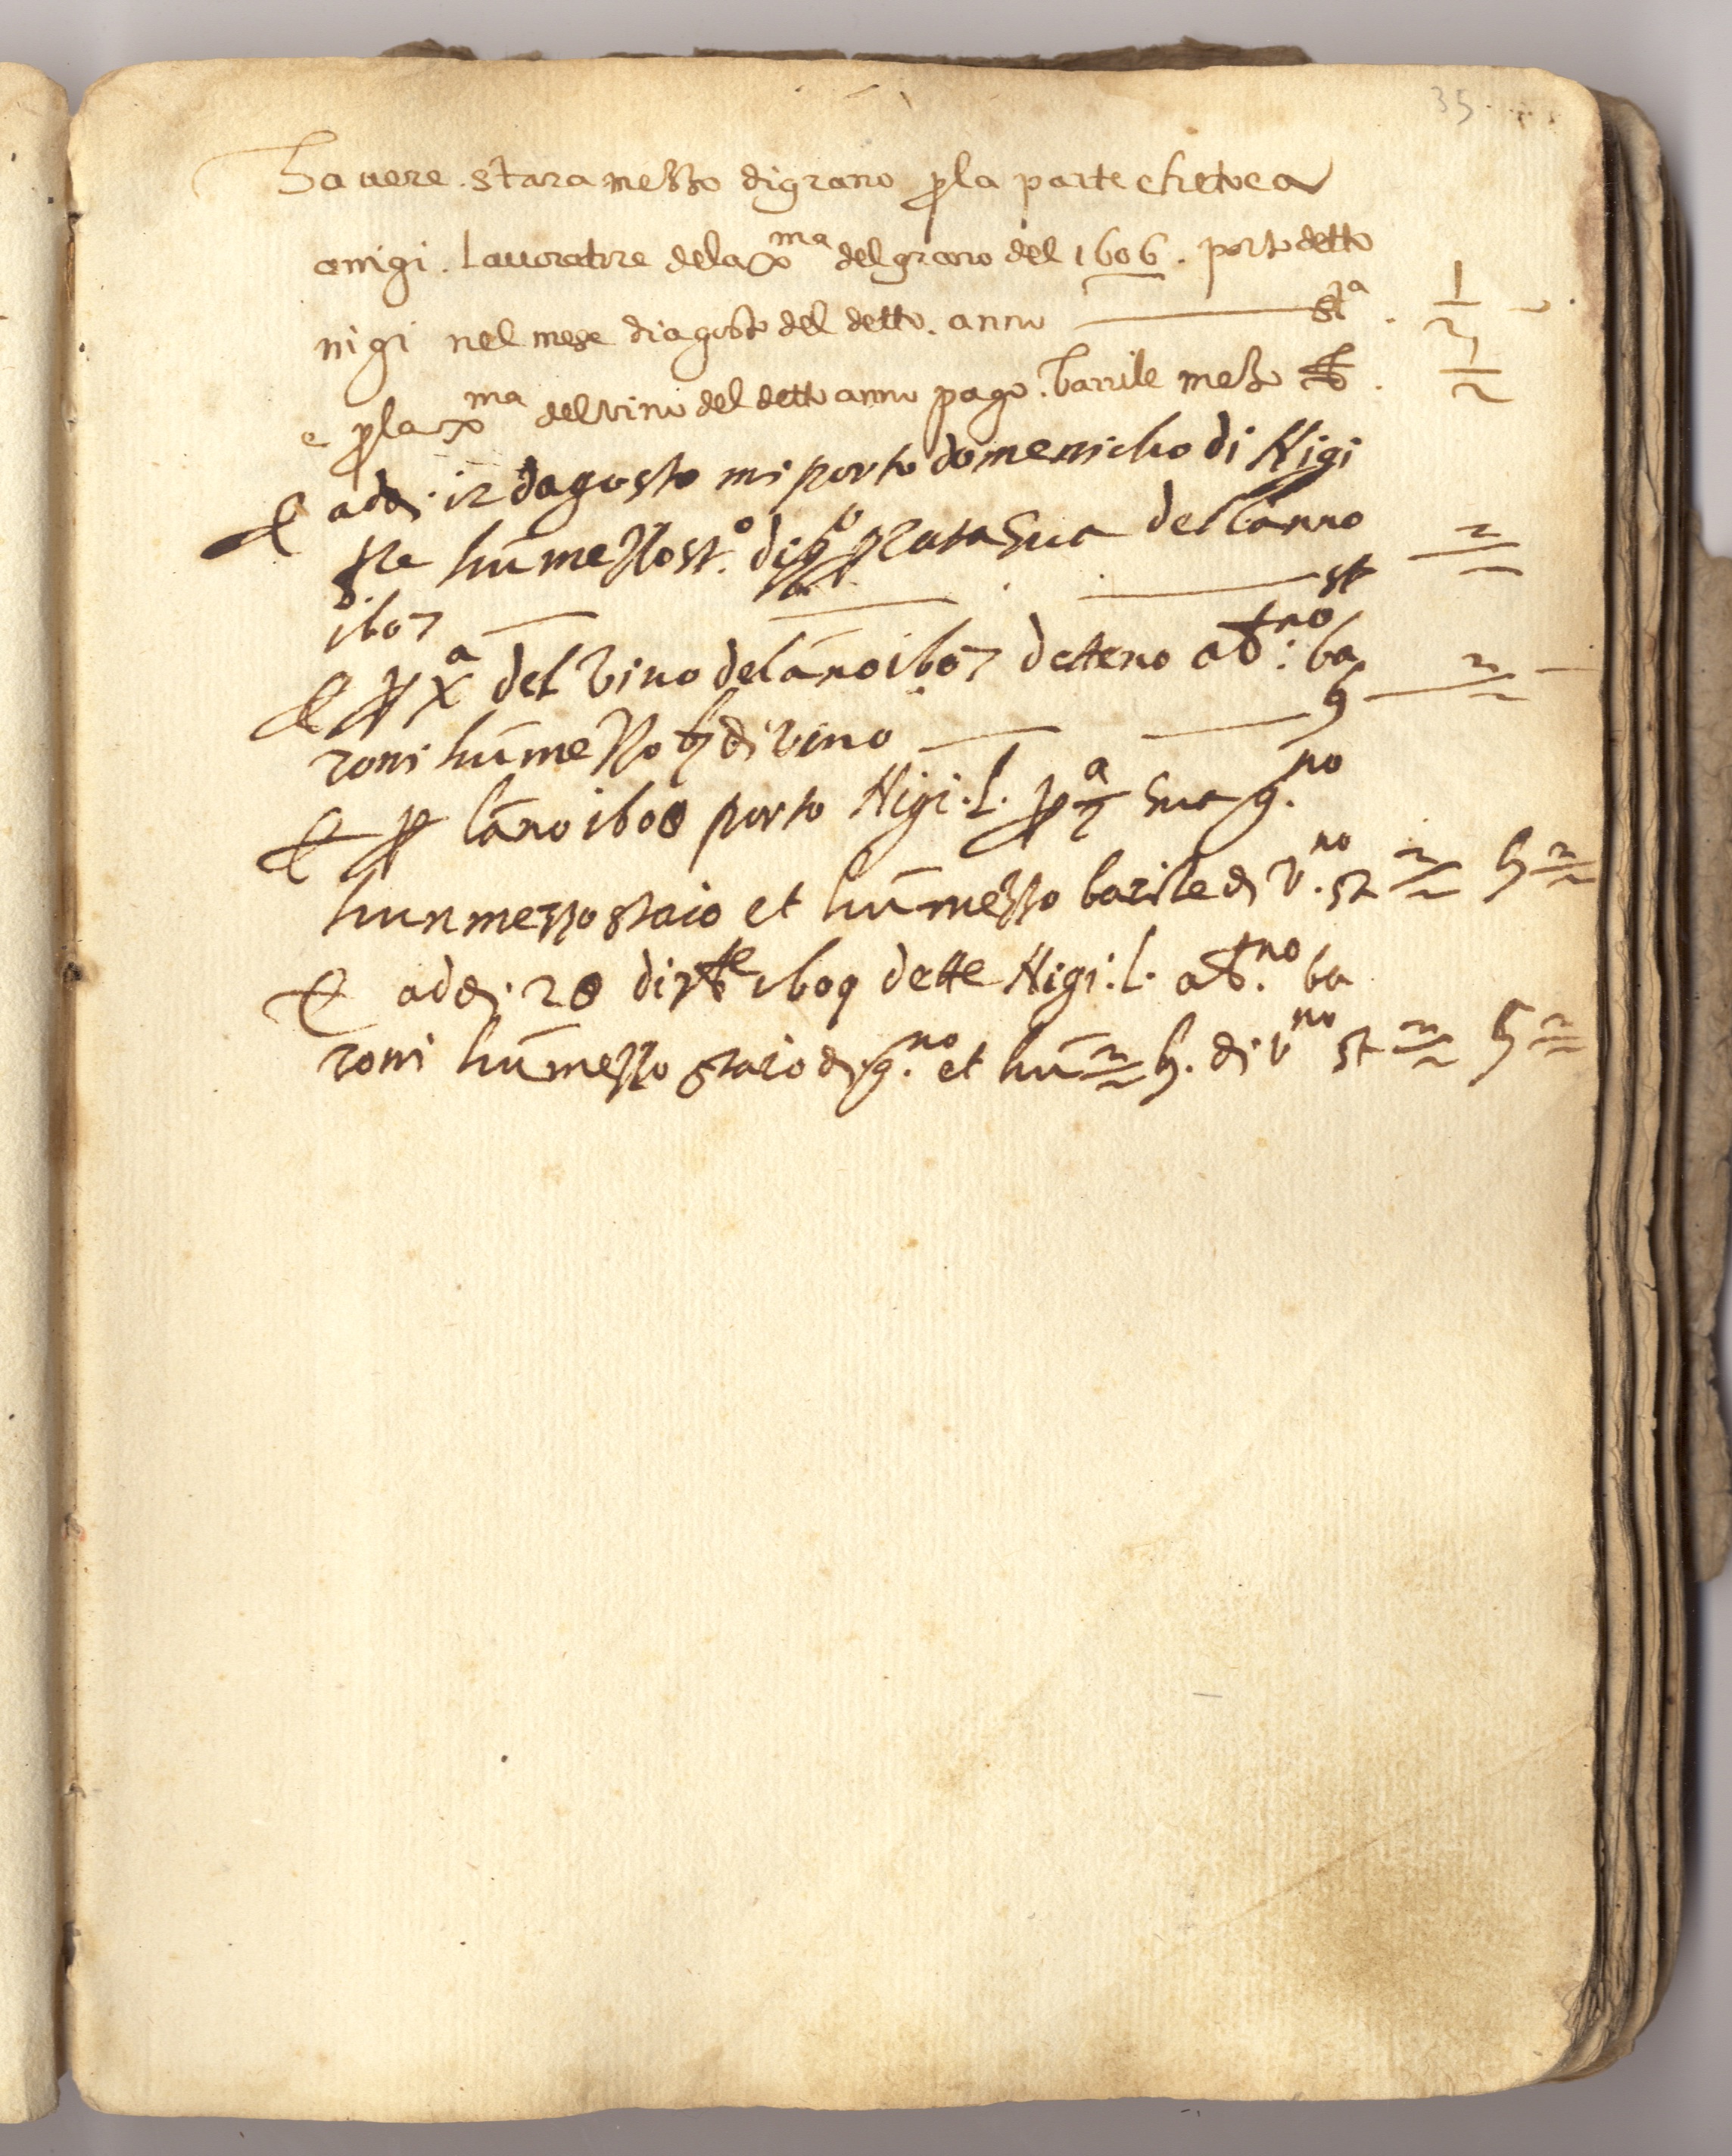 35
Havere . stara mezzo di grano p la parte che toca
a nigi . lavoratore dela xma del grano del 1606 . porto detto
nigi nel mese di agosto del detto . anno sta . 1/2
e p la xma del vino del detto anno pago . barrile mezo . 1/2
E adi . 12 dagosto mi porto domenicho di Nigi
hu mezzo st.o di rata sua del lanno
1607 st
E p xa del vino delano 1607 detteno a btno : ba
roni hu mezzo di vino
E p lano 1608 porto Nigi . l . p a sua g.no
hun mezzo staio et hu mezzo barile di v.no st
E adi . 28 di 1609 dette Nigi . l . a bt.no ba
roni hu mezzo staio di g.no et hu b. di vno st